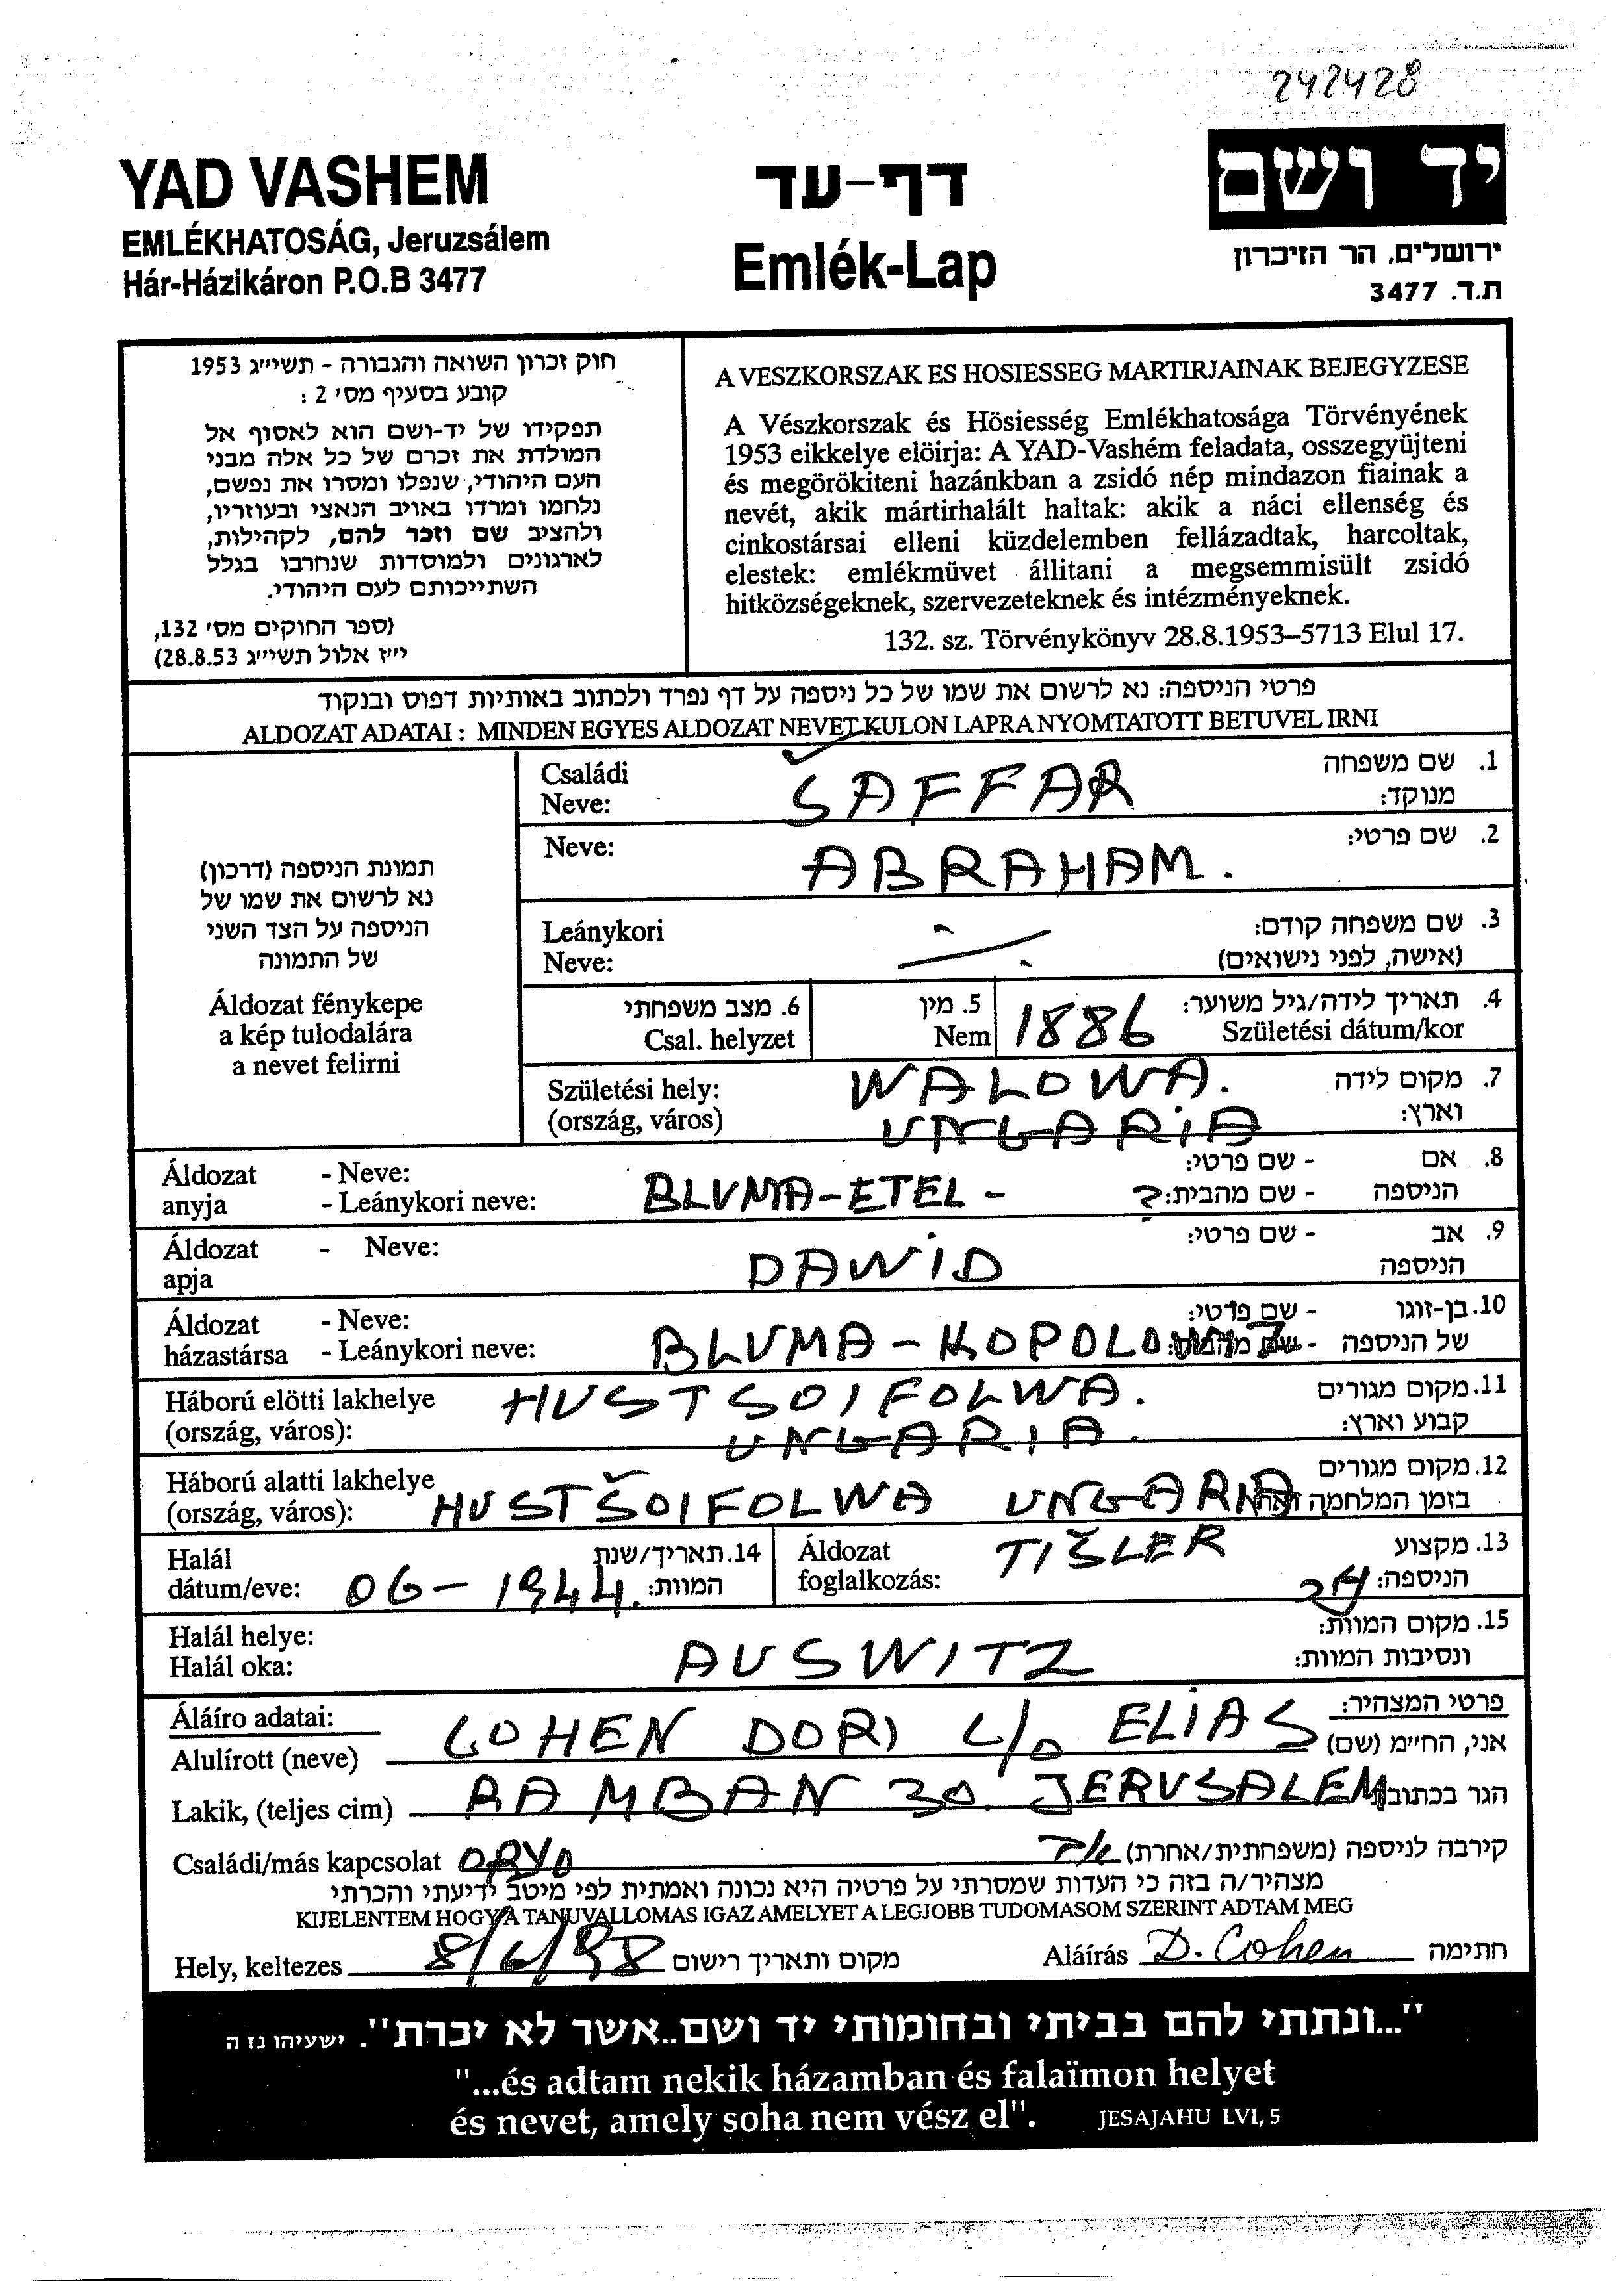 242428
YAD VASHEM
EMLÉKHATOSÁG, Jeruzsálem
Hár-Házikáron P.O.B 3477
דף-עד
Emlék-Lap
יד ושם
ירושלים, הר הזיכרון
ת.ד. 3477
חוק זכרון השואה והגבורה - תשי״ג 1953
קובע בסעיף מס׳ 2 :
תפקידו של יד-ושם הוא לאסוף אל
המולדת את זכרם של כל אלה מבני
העם היהודי, שנפלו ומסרו את נפשם,
נלחמו ומרדו באויב הנאצי ובעוזריו,
ולהציב שם וזכר להם, לקהילות,
לארגונים ולמוסדות שנחרבו בגלל
השתייכותם לעם היהודי.
(ספר החוקים מס׳ 132,
י״ז אלול תשי״ג 28.8.53)
A VESZKORSZAK ES HOSIESSEG MARTIRJAINAK BEJEGYZESE
A Vészkorszak és Hösiesség Emlékhatosága Törvényének
1953 eikkelye elöirja: A YAD-Vashém feladata, osszegyüjteni
és megörökiteni hazánkban a zsidó nép mindazon fiainak a
nevét, akik mártirhalált haltak: akik a náci ellenség és
cinkostársai elleni küzdelemben fellázadtak, harcoltak,
elestek: emlékmüvet állitani a megsemmisült zsidó
hitközségeknek, szervezeteknek és intézményeknek.
132. sz. Törvénykönyv 28.8.1953–5713 Elul 17.
פרטי הניספה: נא לרשום את שמו של כל ניספה על דף נפרד ולכתוב באותיות דפוס ובנקוד
ALDOZAT ADATAI : MINDEN EGYES ALDOZAT NEVET KULON LAPRA NYOMTATOTT BETUVEL IRNI
תמונת הניספה (דרכון)
נא לרשום את שמו של
הניספה על הצד השני
של התמונה
Áldozat fénykepe
a kép tulodalára
a nevet felirni
Családi
Neve:
SAFFAR
1. שם משפחה
מנוקד:
Neve:
ABRAHAM.
2. שם פרטי:
Leánykori
Neve:
3. שם משפחה קודם:
(אישה, לפני נישואים)
6. מצב משפחתי
Csal. helyzet
5. מין
Nem
1886
4. תאריך לידה/גיל משוער:
Születési dátum/kor
Születési hely:
(ország, város)
WALOWA.
UNGARIA
7. מקום לידה
וארץ:
Áldozat - Neve:
anyja - Leánykori neve:
BLUMA-ETEL - ?
8. אם - שם פרטי:
הניספה - שם מהבית:
Áldozat - Neve:
apja
DAWID
9. אב - שם פרטי:
הניספה
Áldozat - Neve:
házastársa - Leánykori neve:
BLUMA - KOPOLOWIZ
10. בן-זוגו - שם פרטי:
של הניספה - שם מהבית:
Háború elötti lakhelye
(ország, város):
HUSTSOIFOLWA.
UNGARIA.
11. מקום מגורים
קבוע וארץ:
Háború alatti lakhelye
(ország, város):
HUSTŠOIFOLWA UNGARIA
12. מקום מגורים
בזמן המלחמה וארץ:
Halál
dátum/eve:
06-1944.
14. תאריך/שנת
המוות:
Áldozat
foglalkozás:
TIŠLER
13. מקצוע
הניספה:
Halál helye:
Halál oka:
AUSWITZ
15. מקום המוות:
ונסיבות המוות:
Áláíro adatai:
פרטי המצהיר:
Alulírott (neve) COHEN DORI c/o ELIAS אני, החי״מ (שם)
Lakik, (teljes cim) RAMBAN 30. JERUSALEM הגר בכתובת
Családi/más kapcsolat קירבה לניספה (משפחתית/אחרת)
מצהיר/ה בזה כי העדות שמסרתי על פרטיה היא נכונה ואמתית לפי מיטב ידיעתי והכרתי
KIJELENTEM HOGY A TANUVALLOMAS IGAZ AMELYET A LEGJOBB TUDOMASOM SZERINT ADTAM MEG
Hely, keltezes 8/6/98 מקום ותאריך רישום Aláírás D. Cohen חתימה
"...ונתתי להם בביתי ובחומותי יד ושם..אשר לא יכרת". ישעיהו נז ה
"...és adtam nekik házamban és falaïmon helyet
és nevet, amely soha nem vész el". JESAJAHU LVI, 5